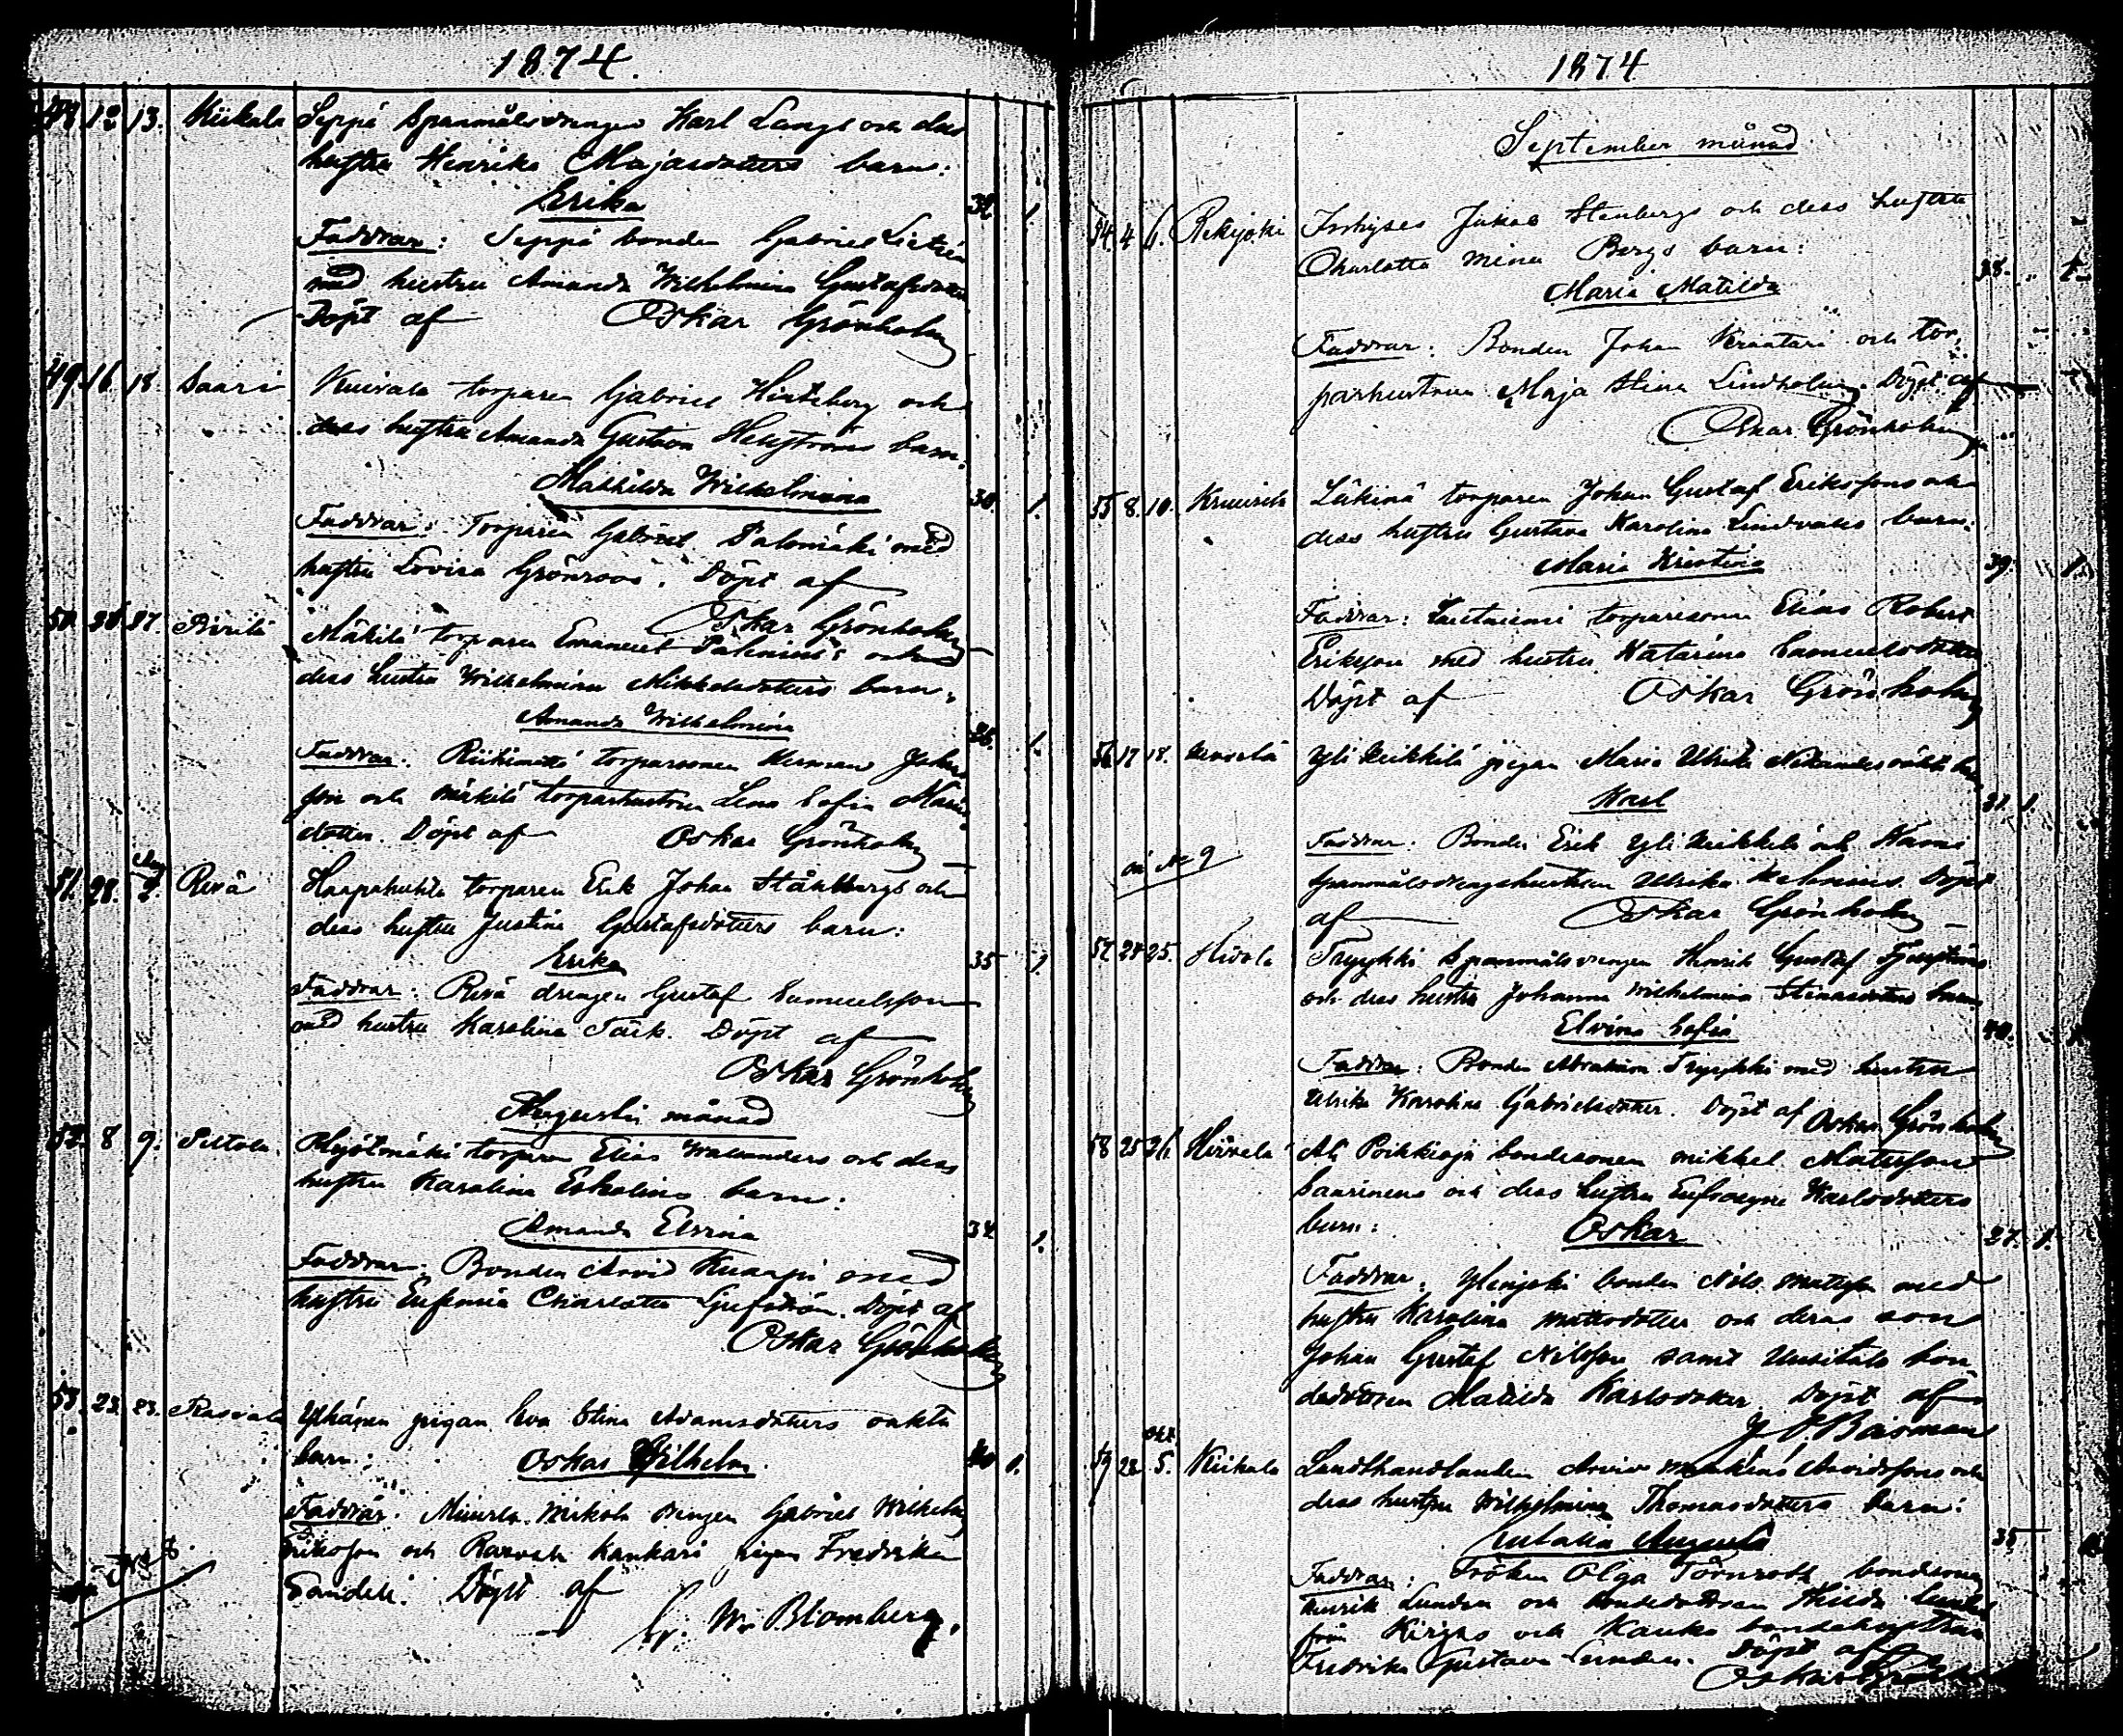 1874.
48 12 13. Kiikala Seppä Spanmålsdrengen Karl Langs och dess
hustru Henrika Majasdotters barn:
Erika
32. 1.
Faddrar: Seppä bonden Gabriel
med hustru Amanda Wilhelmina Gustafsdotter
Döpt af Oskar Grönholm
49. 16. 18. Saari Kuivala torparen Gabriel Hintzberg och
dess hustru Amanda Gustava Hellströms barn.
Mathilda Wilhelmina
30. 1.
Faddrar: Torparen Gabriel Palomäki med
hustru Lovisa Grönroos. Döpt af
Oskar Grönholm
50. 27. Pirilä Mäkilä torparen Emanuel Palenius's och
dess hustru Wilhelmina Mikkelsdotters barn,
Amanda Wilhelmina
26. 1.
Faddrar: Riihimäki torparsonen Herman Johans
son och Mäkilä torparhustrun Lena Sofia Maria
dotter. Döpt af Oskar Grönholm
51. 28. Aug 2. Rivä Haapahuhta torparen Erik Johan Ståhlbergs och
dess hustru Justina Gustafsdotters barn:
Erika
35 1.
Faddrar: Rivä drengen Gustaf Samuelsson
med hustru Karolina Täck. Döpt af
Oskar Grönholm
Augusti månad
52. 8 9. Peltola. torparen Elias Wallanders och dess
hustru Karolina Eskolins barn:
Amanda Elvina
34 1.
Faddrar: Bonden Arvid Knaapi med
hustru Eufemia Charlotta. Döpt af
Oskar Grönholm
53. 23. 23. Rasvala Ylhäsen pigan Eva Stina Adamsdotters oäkta
barn: Oskar Wilhelm.
40 1.
Faddrar. Muurla Mikola drengen Gabriel Wilhelm
Eriksson och Rasvala Kankari pigan Fredrika
Sandell. Döpt af
W. Blomberg.
N:o 8.
1874
September månad
54. 4 6. Rekijoki Inhyses Jakob Stenbergs och dess hustru
Charlotta Mina Bergs barn:
28. 1.
Maria Matilda
Faddrar: Bonden Johan Kraatari och tor,
parhustrun Maja Stina Lindholm. Döpt af
Oskar Grönholm
55 8. 10. Kruusila torparen Johan Gustaf Erikssons och
dess hustru Gustava Karolina Lindvalls barn:
Maria Kristina
39. 1.
Faddrar: torparesonen Elias Robert
Eriksson med hustru Katarina Samuelsdotter
Döpt af Oskar Grönholm
56. 17 18. Yli Heikkilä pigan Maria Ulrika Nikanders oäkta barn
Karl
31 1.
Faddrar. Bonden Erik Yli Heikkilä och
spanmålsdrengshustrun Ulrika Helenius. Döpt
af Oskar Grönholm
N:o 9
57 24 25. Hirvela Tryykki Spanmålsdrengen Henrik Gustaf
och dess hustru Johanna Wilhelmina Stinasdotters barn
Elvina Sofia
40.
Faddrar: Bonden Abraham Tryykki med hustru
Ulrika Karolina Gabrielsdotter. Döpt af Oskar Grönholm
58 25 26. Hirvelä Ali Poikkioja bondesonen Mikkel Matsson
Saarinens och dess hustru Eufrosyne Karlsdotters
barn: Oskar
27. 1.
Faddrar. Ylinjoki bonden Nils Matsson med
hustru Karolina Mattsdotter och deras son
Johan Gustaf Nilsson samt Uusitalo bon
dedottren Matilda Karlsdotter Döpt af
J. Boisman
59 28 Okt. 5. Kiikala Landthandlanden Arvid Arvidssons och
dess hustru Wilhelmina Thomasdotters barn:
Natalia Augusta
35
Faddrar: Fröken Olga Törnroth bondesonen
Henrik Lunden och bondedottren Hilda
från Kirjas och Kauko bondehustrun
Fredrika Gustava Lunden. Döpt af
Oskar Grönholm